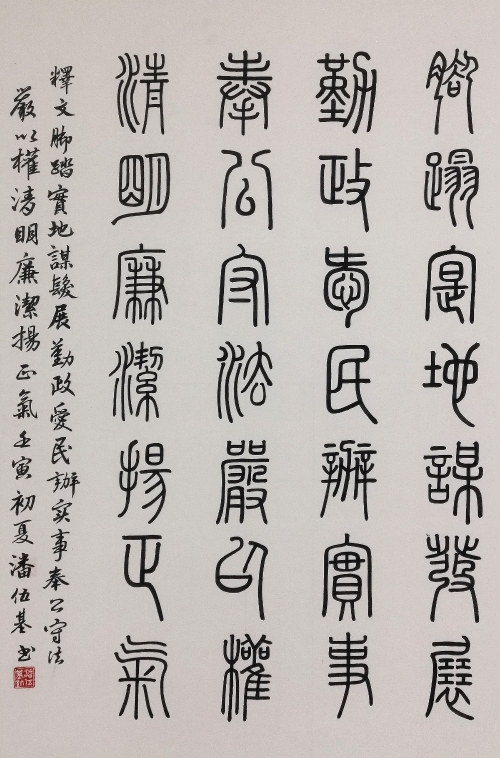 腳蹋寔地謀發展
勤政愛民辦實事
奉公守法嚴以權
清明廉潔揚正氣
釋文脚踏實地謀髮展勤政愛民辦实事奉公守法
嚴以權清明廉潔揚正氣壬寅初夏潘伍基书